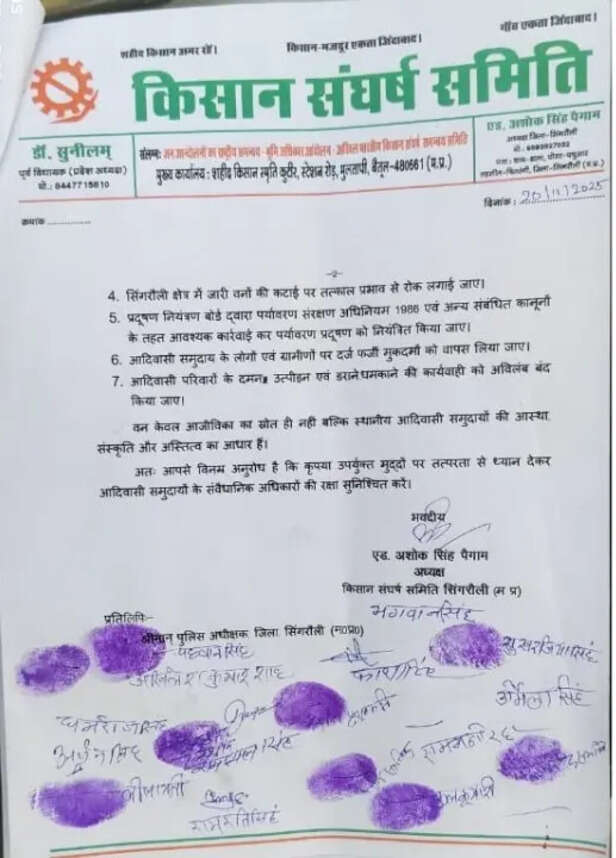 शहीद किसान अमर रहें।
किसान-मजदूर एकता जिंदाबाद।
गाँव एकता जिंदाबाद।
किसान संघर्ष समिति
डॉ. सुनीलम्
पूर्व विधायक (प्रदेश अध्यक्ष)
मो.: 8447715810
संलग्न: जन आन्दोलनों का राष्ट्रीय समन्वय - भूमि अधिकार आंदोलन - अखिल भारतीय किसान संघर्ष समन्वय समिति
मुख्य कार्यालय : शहीद किसान स्मृति कुटीर, स्टेशन रोड़, मुलतापी, बैतूल-480661 (म.प्र.)
एड. अशोक सिंह पैगाम
अध्यक्ष जिला-सिंगरौली
जिला-सिंगरौली (म.प्र.)
क्रमांक ..............
दिनांक : 20/11/2025
-2-
4. सिंगरौली क्षेत्र में जारी वनों की कटाई पर तत्काल प्रभाव से रोक लगाई जाए।
5. प्रदूषण नियंत्रण बोर्ड द्वारा पर्यावरण संरक्षण अधिनियम 1986 एवं अन्य संबंधित कानूनों
के तहत आवश्यक कार्रवाई कर पर्यावरण प्रदूषण को नियंत्रित किया जाए।
6. आदिवासी समुदाय के लोगों एवं ग्रामीणों पर दर्ज फर्जी मुकदमों को वापस लिया जाए।
7. आदिवासी परिवारों के दमन, उत्पीड़न एवं डराने धमकाने की कार्यवाही को अविलंब बंद
किया जाए।
वन केवल आजीविका का स्रोत ही नही बल्कि स्थानीय आदिवासी समुदायों की आस्था,
संस्कृति और अस्तित्व का आधार हैं।
अतः आपसे विनम्र अनुरोध है कि कृपया उपर्युक्त मुद्दों पर तत्परता से ध्यान देकर
आदिवासी समुदायों के संवैधानिक अधिकारों की रक्षा सुनिश्चित करें।
भवदीय
एड. अशोक सिंह पैगाम
अध्यक्ष
किसान संघर्ष समिति सिंगरौली (म प्र)
भगवान सिंह
प्रतिलिपि:-
श्रीमान पुलिस अधीक्षक जिला सिंगरौली (म०प्र०)
अखिलेश कुमार शाह
उर्मिला सिंह
धर्मराज सिंह